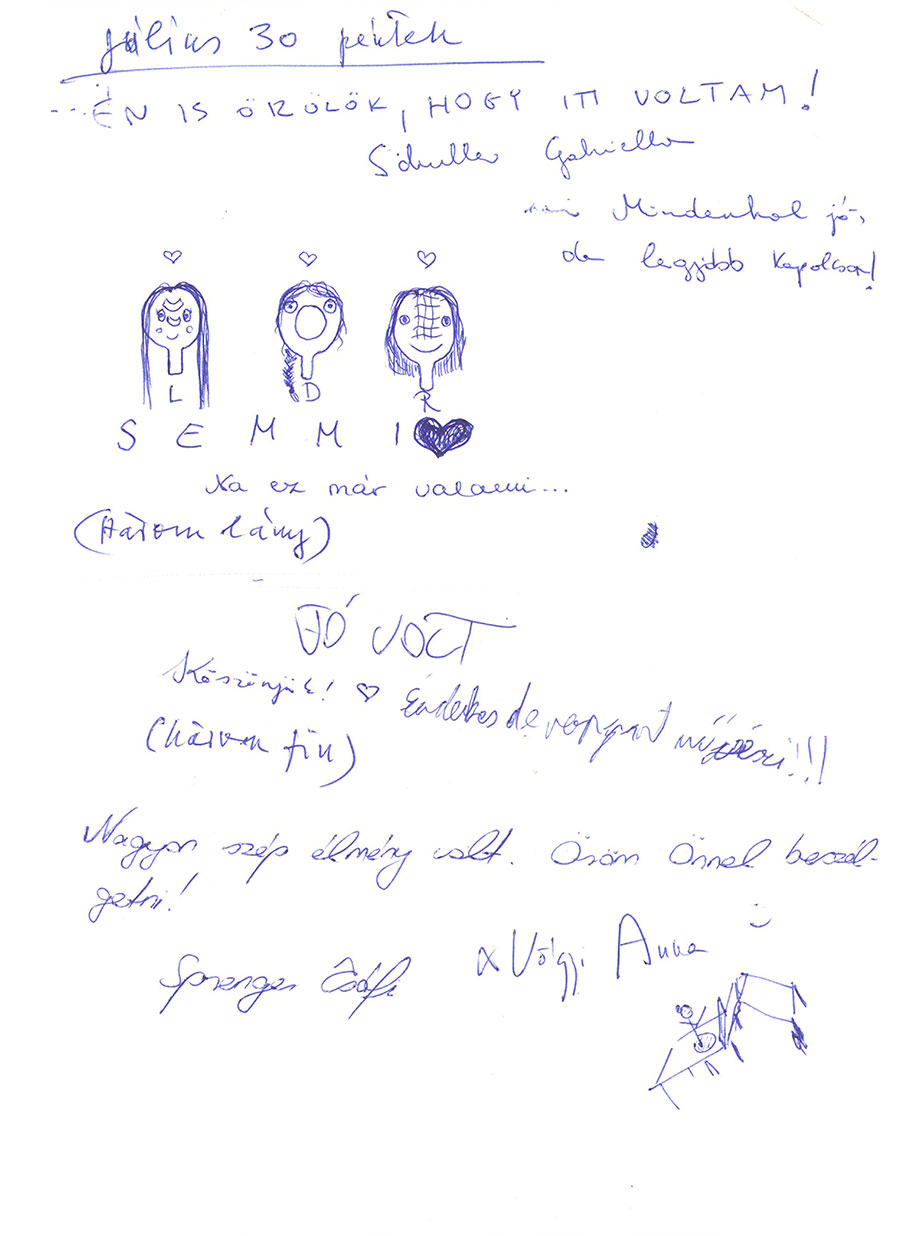 július 30 péntek
... ÉN IS ÖRÜLÖK, HOGY ITT VOLTAM!
Schuller Gabriella
Mindenhol jó,
de legjobb Kapolcson!
L D R
S E M M I
Na ez már valami...
(Három lány)
JÓ VOLT
Köszönjük! Érdekes de
(három fiu)
Nagyon szép élmény volt. Öröm Önnel beszél-
getni!
Sprenger Zsófi
Völgyi Anna